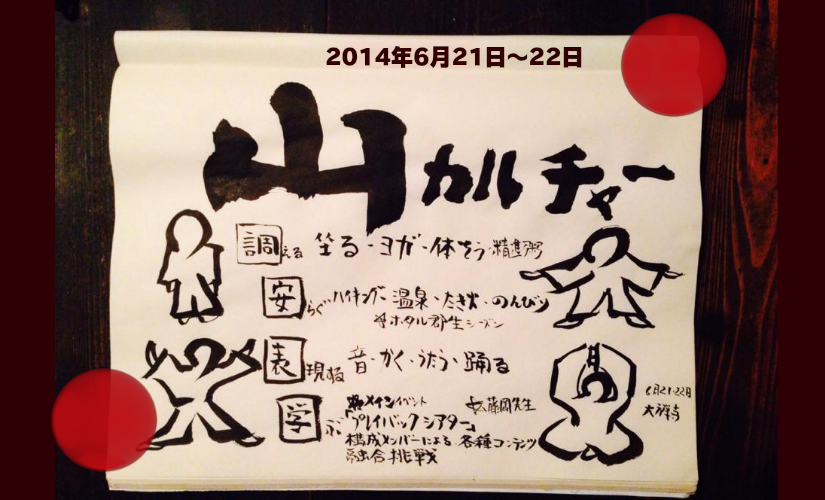 2014年6月21日～22日
山カルチャー
調える 坐る・ヨガ・体そう・精進粥
安らぐ ハイキング、温泉・たき火・のんびり
ホタル群生シーズン
表現する 音・かく・うたう・踊る
メインイベント 藤岡先生
学ぶ 「プレイバックシアター」
構成メンバーによる 各種コンテンツ
融合挑戦
6月21・22日
大禅寺